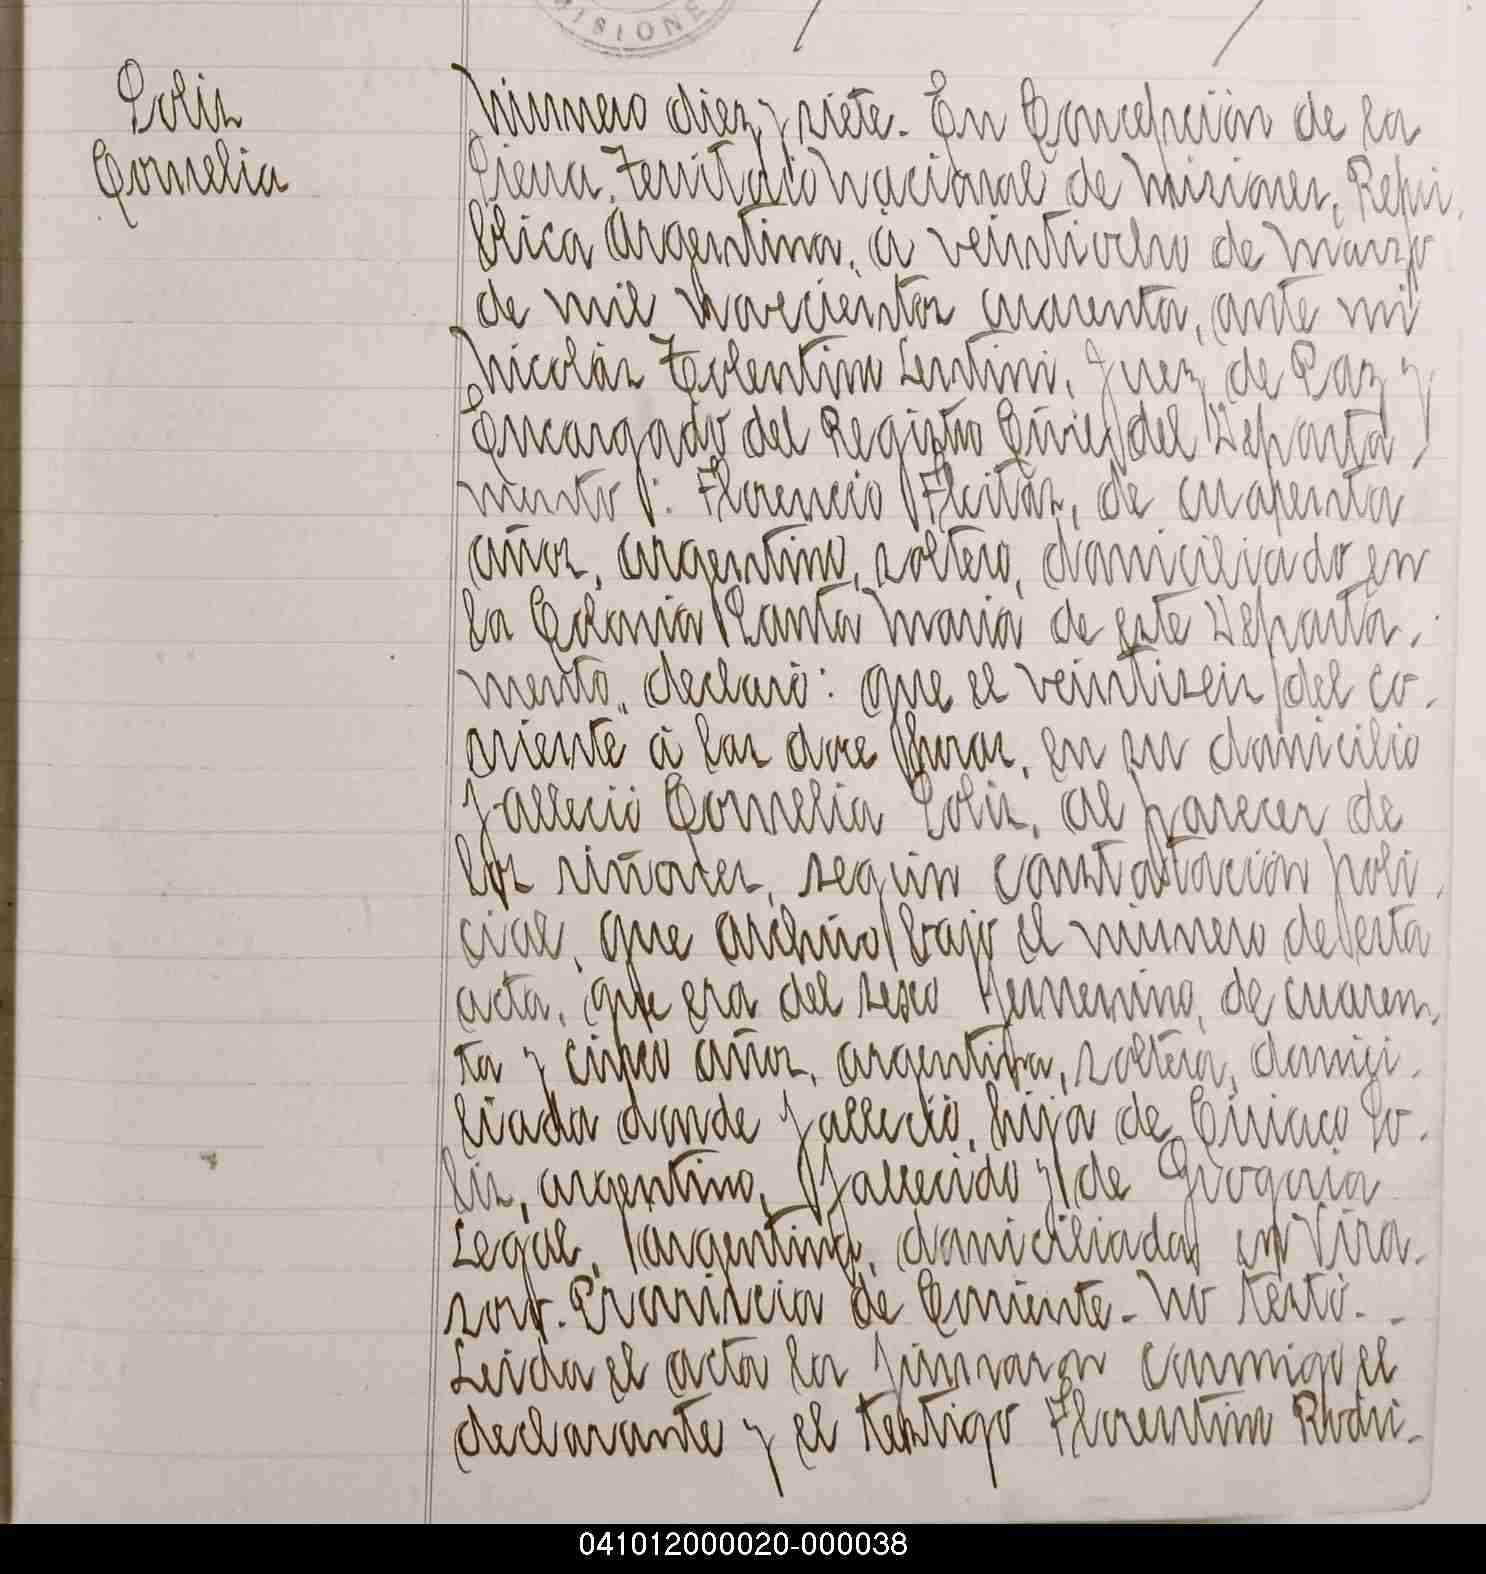 MISIONE
Solis
Cornelia
Número diez y siete. En Concepción de la
Sierra, Territorio Nacional de Misiones, Repú-
blica Argentina, á veintiocho de Marzo
de mil novecientos cuarenta, ante mi
Nicolás Tolentino Lentini, Juez de Paz y
Encargado del Registro Civil del Departa-
mento: Florencio Fleitas, de cuarenta
años, argentino, soltero, domiciliado en
la Colonia Santa Maria de este Departa-
mento, declaró: que el veintiseis del co-
rriente á las doce horas, en su domicilio
falleció Cornelia Solis, al parecer de
los riñones, según constatación poli-
cial, que archivo bajo el número de esta
acta, que era del sexo femenino, de cuaren-
ta y cinco años, argentina, soltera, domici-
liada donde falleció, hija de Ciriaco So-
lis, argentino, fallecido y de Grogoria
Legal, argentina, domiciliada en Vira-
soro. Provincia de Corriente- No testó.-
Leida el acta la firmaron conmigo el
declarante y el testigo Florentino Rodri-
041012000020-000038